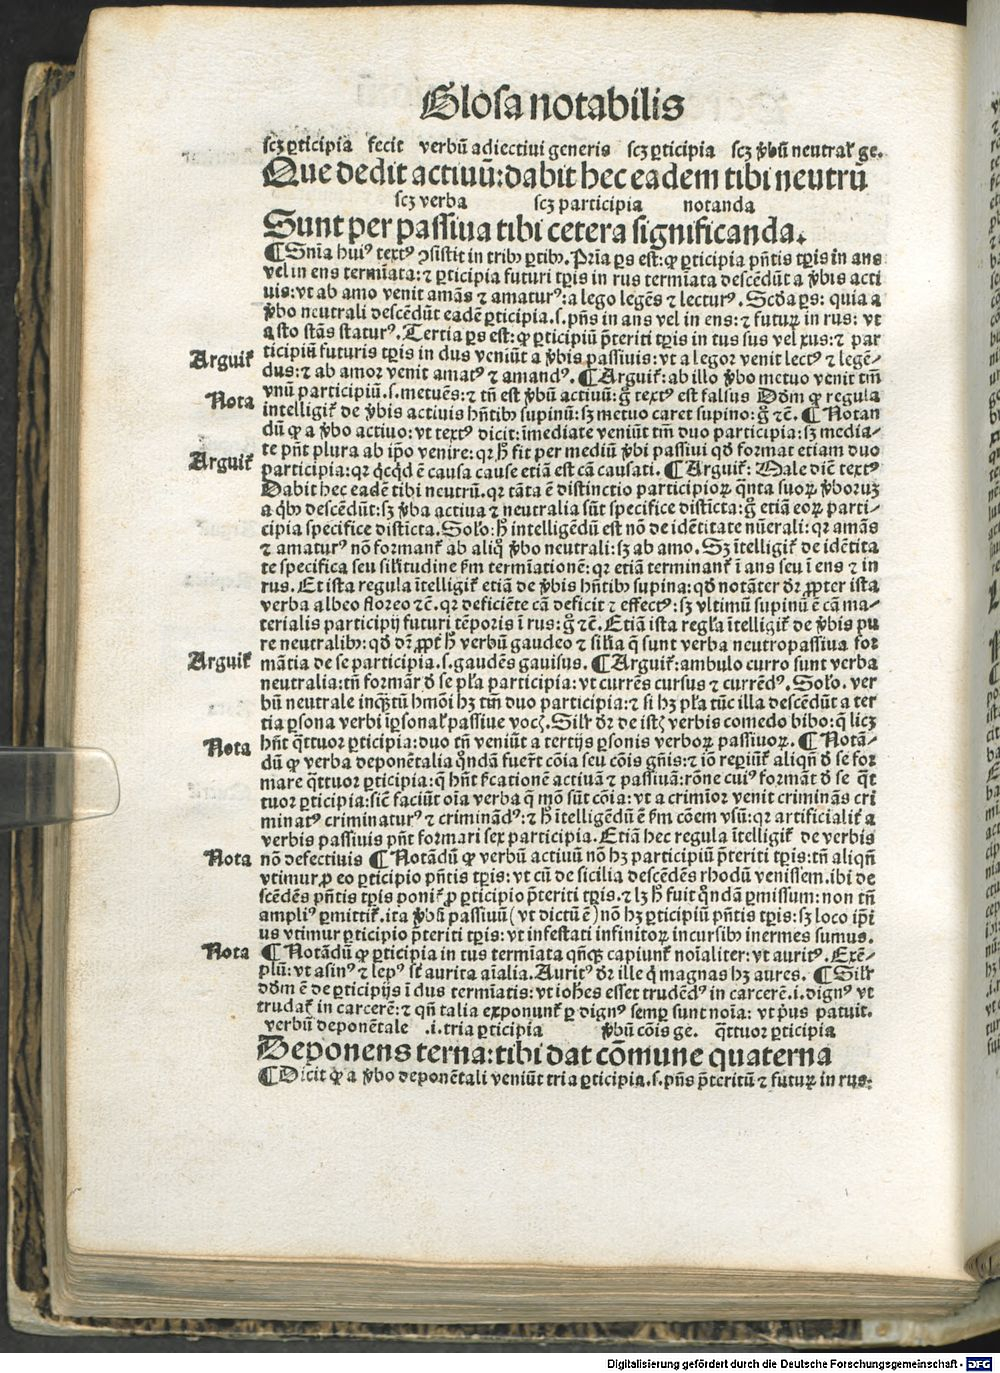 Glosa notabilis
scꝫ ꝑticipia fecit verbū adiectiui generis scꝫ ꝑticipia scꝫ v̾bū neutral̓ ge.
Que dedit actiuū: dabit hec eadem tibi neutrū
scꝫ verba scꝫ participia notanda
Sunt per passiua tibi cetera significanda.
¶ Snīa huiꝰ textꝰ ꝯsistit in tribꝰ ꝑtibꝰ. Pria ps est: ꝙ ꝑticipia pn̄tis tp̄is in ans
vel in ens termīata: ⁊ ꝑticipia futuri tp̄is in rus termīata descēdūt a v̾bis acti
uis: vt ab amo venit amās ⁊ amaturꝰ: a lego legēs ⁊ lecturꝰ. Scd̄a ps: quia a
v̾bo neutrali descēdūt eadē ꝑticipia. s. pn̄s in ans vel in ens: ⁊ futuꝝ in rus: vt
a sto stās staturꝰ. Tertia ps est: ꝙ ꝑticipiū p̄teriti tp̄is in tus sus vel xus: ⁊ par
ticipiū futuris tp̄is in dus veniūt a v̾bis passiuis: vt a legor venit lectꝰ ⁊ legē-
Arguit̓
dus: ⁊ ab amor venit amatꝰ ⁊ amandꝰ. ¶ Arguit̓: ab illo v̾bo metuo venit tm̄
vnū participiū. s. metuēs: ⁊ tn̄ est v̾bū actiuū: g̊ textꝰ est falsus Dd̄m ꝙ regula
Nota
intelligit̓ de v̾bis actiuis hn̄tibꝰ supinū: sꝫ metuo caret supino: g̊ ⁊c̄. ¶ Notan
dū ꝙ a v̾bo actiuo: vt textꝰ dicit: īmediate veniūt tm̄ duo participia: sꝫ media-
te pn̄t plura ab ip̄o venire: qꝛ h̓ fit per mediū v̾bi passiui qd̄ format etiam duo
Arguit̓
participia: qꝛ q̇cq̇d ē causa cause etiā est cā causati. ¶ Arguit̓: Male dic̄ textꝰ
Dabit hec eadē tibi neutrū. qꝛ tāta ē distinctio participioꝝ q̄nta suoꝝ v̾boruꝫ
a q̇bꝰ descēdūt: sꝫ v̾ba actiua ⁊ neutralia sūt specifice disticta: g̊ etiā eoꝝ parti-
cipia specifice disticta. Solo: h̓ intelligēdū est nō de idētitate nūerali: qꝛ amās
⁊ amaturꝰ nō formant̓ ab aliq̊ v̾bo neutrali: sꝫ ab amo. Sꝫ ītelligit̓ de idētita
te specifica seu silitudine ẜm termīationē: qꝛ etiā terminant̓ ī ans seu ī ens ⁊ in
rus. Et ista regula ītelligit̓ etiā de v̾bis hn̄tibꝰ supina: qd̄ notāter dr̄ ꝓpter ista
verba albeo floreo ⁊c̄. qꝛ deficiēte cā deficit ⁊ effectꝰ: sꝫ vltimū supinū ē cā ma-
terialis participij futuri tēporis ī rus: g̊ ⁊c̄. Etiā ista regl̓a ītelligit̓ de v̾bis pu
re neutralibꝰ: qd̄ dr̄ ꝓpt̓ h̓ verbū gaudeo ⁊ silia q̄ sunt verba neutropassiua for
Arguit̓
mātia de se participia. s. gaudēs gauisus. ¶ Arguit̓: ambulo curro sunt verba
neutralia: tn̄ formāt d̓ se pl̓a participia: vt currēs cursus ⁊ currēdꝰ. Solo. ver
bū neutrale inqꝫtū hmōi hꝫ tm̄ duo participia: ⁊ si hꝫ pl̓a tūc illa descēdūt a ter
tia ꝑsona verbi ip̄sonal̓ passiue vocꝭ. Silr̓ dr̄ de istꝭ verbis comedo bibo: q̄ licꝫ
Nota
hn̄t q̄ttuor ꝑticipia: duo tn̄ veniūt a tertijs ꝑsonis verboꝝ passiuoꝝ. ¶ Notā-
dū ꝙ verba deponētalia q̊ndā fuerūt cōia seu cōis gn̄is: ⁊ iō reꝑiūt̓ aliqn̄ d̓ se for
mare q̄ttuor ꝑticipia: q̄ hn̄t ẜcationē actiuā ⁊ passiuā: rōne cuiꝰ formāt d̓ se q̄t
tuor ꝑticipia: sic̄ faciūt oīa verba q̄ mō sūt cōia: vt a crimīor venit crimināns cri
minatꝰ criminaturꝰ ⁊ criminādꝰ: ⁊ h̓ ītelligēdū ē ẜm cōem vsū: qꝛ artificialit̓ a
verbis passiuis pn̄t formari sex participia. Etiā hec regula ītelligit̓ de verbis
Nota
nō defectiuis ¶ Notādū ꝙ verbū actiuū nō hꝫ participiū p̄teriti tp̄is: tn̄ aliqn̄
vtimur ꝓ eo ꝑticipio pn̄tis tp̄is: vt cū de sicilia descēdēs rhodū venissem. ibi de
scēdēs pn̄tis tp̄is ponit̓ ꝓ ꝑticipio p̄teriti tp̄is. ⁊ lꝫ h̓ fuit q̊ndā ꝑmissum: non tn̄
ampliꝰ ꝑmittit̓. ita v̾bū passiuū (vt dictū ē) nō hꝫ ꝑticipiū pn̄tis tp̄is: sꝫ loco ip̄i
us vtimur ꝑticipio p̄teriti tp̄is: vt infestati infinitoꝝ incursibꝰ inermes sumus.
Nota
¶ Notādū ꝙ ꝑticipia in tus termīata qn̄qꝫ capiunt̓ noīaliter: vt auritꝰ. Exē-
plū: vt asinꝰ ⁊ lepꝰ st̓ aurita aīalia. Auritꝰ dr̄ ille q̇ magnas hꝫ aures. ¶ Silr̓
dd̄m ē de ꝑticipijs ī dus termīatis: vt ioh̄es esset trudēdꝰ in carcerē. i. dignꝰ vt
trudat̓ in carcerē: ⁊ qn̄ talia exponunt̓ ꝑ dignꝰ semꝑ sunt noīa: vt pꝰus patuit.
verbū deponētale .i. tria ꝑticipia v̾bū cōis ge. q̄ttuor ꝑticipia
Deponens terna: tibi dat cōmune quaterna
¶ Dicit ꝙ a v̾bo deponētali veniūt tria ꝑticipia. s. pn̄s p̄teritū ⁊ futuꝝ in rus:
Digitalisierung gefördert durch die Deutsche Forschungsgemeinschaft - DFG